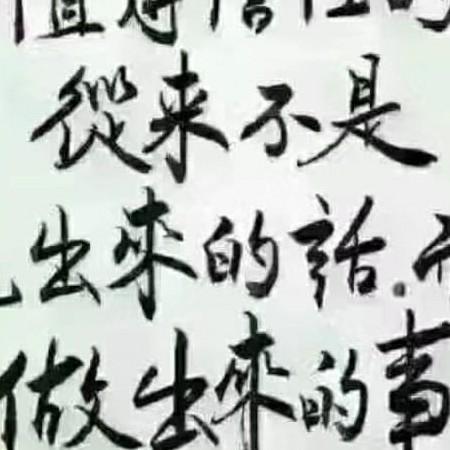 值得信任的
從来不是
出來的話.
做出來的事